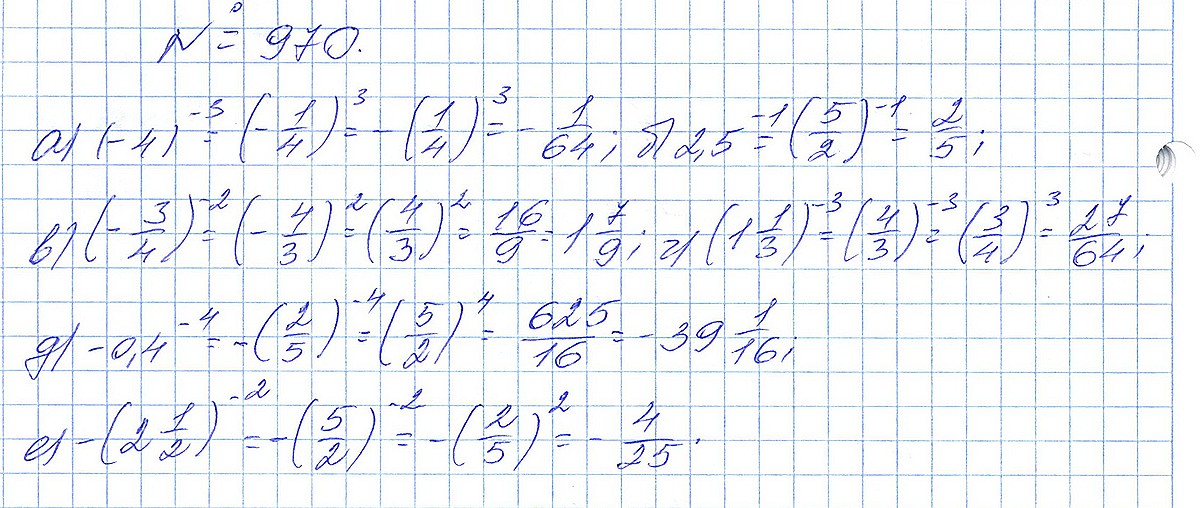 № 970.
а) (-4)^-3 = (-1/4)^3 = -(1/4)^3 = -1/64; б) 2,5^-1 = (5/2)^-1 = 2/5;
в) (-3/4)^-2 = (-4/3)^2 = (4/3)^2 = 16/9 = 1 7/9; г) (1 1/3)^-3 = (4/3)^-3 = (3/4)^3 = 27/64;
д) -0,4^-4 = -(2/5)^-4 = (5/2)^4 = 625/16 = -39 1/16;
е) -(2 1/2)^-2 = -(5/2)^-2 = -(2/5)^2 = -4/25.